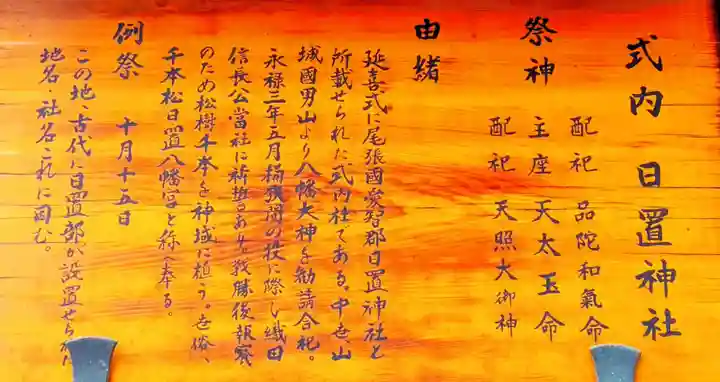 式内 日置神社
祭神
配祀 品陀和氣命
主座 天太玉命
配祀 天照大御神
由緒
延喜式に尾張國愛智郡日置神社と
所載せられた式内社である。中世山
城國男山より八幡大神を勧請合祀。
永禄三年五月桶狭間の役に際し織田
信長公當社に祈誓あり戦勝後報賽
のため松樹千本を神域に植う。世俗、
千本松日置八幡宮と称へ奉る。
例祭 十月十五日
この地、古代に日置部が設置せられ
地名・社名これに因む。